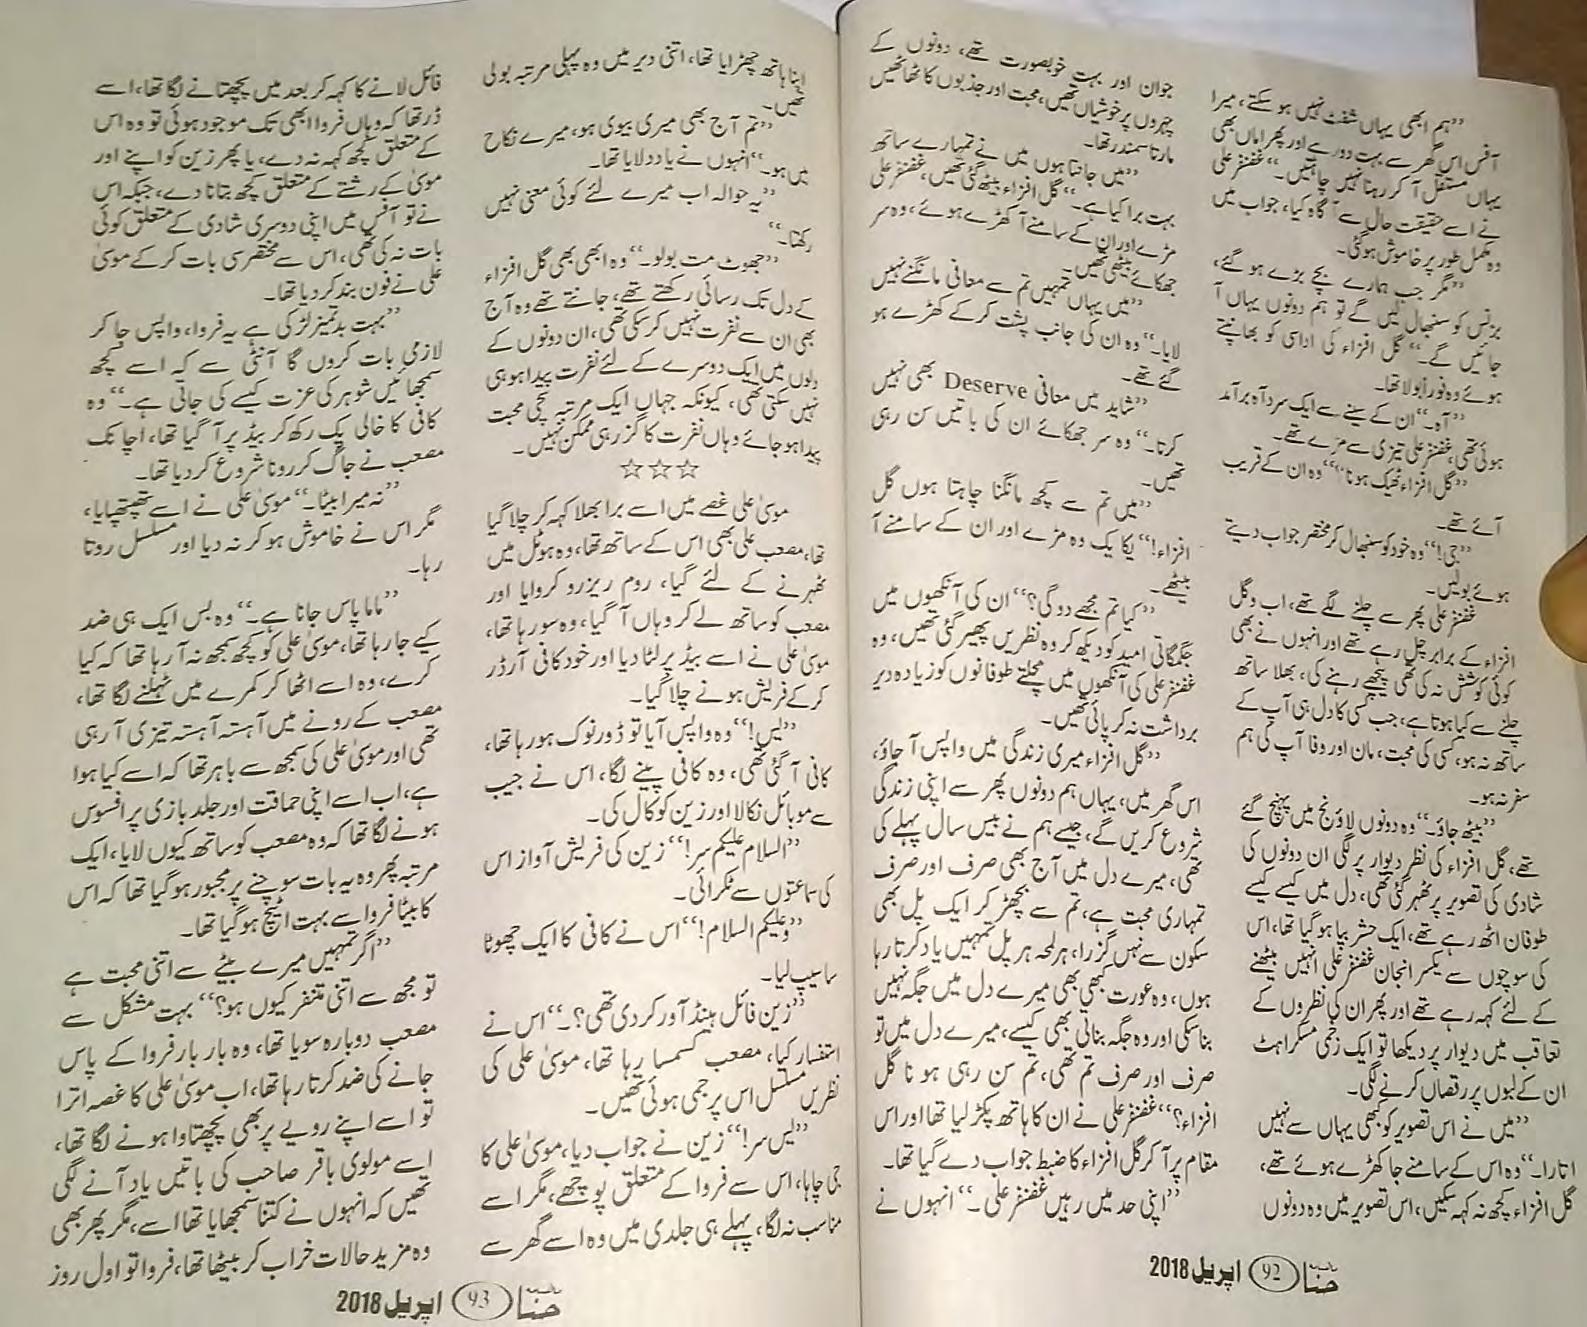 ”ہم ابھی یہاں شفٹ نہیں ہو سکتے، میرا
آفس اس گھر سے بہت دور ہے اور پھر اماں بھی
یہاں مستقل آ کر رہنا نہیں چاہتیں۔“ غضنفر علی
نے اسے حقیقت حال سے آگاہ کیا، جواب میں
وہ مکمل طور پر خاموش ہو گئی۔
”مگر جب ہمارے بچے بڑے ہو گئے،
بزنس کو سنبھال لیں گے تو ہم دونوں یہاں آ
جائیں گے۔“ گل افزاء کی اداسی کو بھانپتے
ہوئے وہ فوراً بولا تھا۔
”آہ۔“ ان کے سینے سے ایک سرد آہ برآمد
ہوئی تھی، غضنفر علی تیزی سے مڑے تھے۔
”گل افزاء ٹھیک ہونا؟“ وہ ان کے قریب
آئے تھے۔
”جی!“ وہ خود کو سنبھال کر مختصر جواب دیتے
ہوئے بولیں۔
غضنفر علی پھر سے چلنے لگے تھے، اب وہ گل
افزاء کے برابر چل رہے تھے اور انہوں نے بھی
کوئی کوشش نہ کی تھی پیچھے رہنے کی، بھلا ساتھ
چلنے سے کیا ہوتا ہے، جب کسی کا دل ہی آپ کے
ساتھ نہ ہو، کسی کی محبت، مان اور وفا آپ کی ہم
سفر نہ ہو۔
”بیٹھ جاؤ۔“ وہ دونوں لاؤنج میں پہنچ گئے
تھے، گل افزاء کی نظر دیوار پر لگی ان دونوں کی
شادی کی تصویر پر ٹھہر گئی تھی، دل میں کیسے کیسے
طوفان اٹھ رہے تھے، ایک حشر بپا ہو گیا تھا، اس
کی سوچوں سے یکسر انجان غضنفر علی انہیں بیٹھنے
کے لئے کہہ رہے تھے اور پھر ان کی نظروں کے
تعاقب میں دیوار پر دیکھا تو ایک زخمی مسکراہٹ
ان کے لبوں پر رقصاں کرنے لگی۔
”میں نے اس تصویر کو کبھی یہاں سے نہیں
اتارا۔“ وہ اس کے سامنے جا کھڑے ہوئے تھے،
گل افزاء کچھ نہ کہہ سکیں، اس تصویر میں وہ دونوں
جوان اور بہت خوبصورت تھے، دونوں کے
چہروں پر خوشیاں تھیں، محبت اور جذبوں کا ٹھاٹھیں
مارتا سمندر تھا۔
”میں جانتا ہوں میں نے تمہارے ساتھ
بہت برا کیا ہے۔“ گل افزاء بیٹھ گئی تھیں، غضنفر علی
مڑے اور ان کے سامنے آ کھڑے ہوئے، وہ سر
جھکائے بیٹھی تھیں۔
”میں یہاں تمہیں تم سے معافی مانگنے نہیں
لایا۔“ وہ ان کی جانب پشت کر کے کھڑے ہو
گئے تھے۔
”شاید میں معافی Deserve بھی نہیں
کرتا۔“ وہ سر جھکائے ان کی باتیں سن رہی
تھیں۔
”میں تم سے کچھ مانگنا چاہتا ہوں گل
افزاء!“ یکا یک وہ مڑے اور ان کے سامنے آ
بیٹھے۔
”کیا تم مجھے دو گی؟“ ان کی آنکھوں میں
جگمگاتی امید کو دیکھ کر وہ نظریں پھیر گئی تھیں، وہ
غضنفر علی کی آنکھوں میں مچلتے طوفانوں کو زیادہ دیر
برداشت نہ کر پائی تھیں۔
”گل افزاء میری زندگی میں واپس آ جاؤ،
اس گھر میں، یہاں ہم دونوں پھر سے اپنی زندگی
شروع کریں گے، جیسے ہم نے بیس سال پہلے کی
تھی، میرے دل میں آج بھی صرف اور صرف
تمہاری محبت ہے، تم سے بچھڑ کر ایک پل بھی
سکون سے نہیں گزرا، ہر لمحہ ہر پل تمہیں یاد کرتا رہا
ہوں، وہ عورت کبھی بھی میرے دل میں جگہ نہیں
بنا سکی اور وہ جگہ بناتی بھی کیسے، میرے دل میں تو
صرف اور صرف تم تھی، تم سن رہی ہو نا گل
افزاء؟“ غضنفر علی نے ان کا ہاتھ پکڑ لیا تھا اور اس
مقام پر آ کر گل افزاء کا ضبط جواب دے گیا تھا۔
”اپنی حد میں رہیں غضنفر علی۔“ انہوں نے
ماہنامہ حنا 92 اپریل 2018
اپنا ہاتھ چھڑایا تھا، اتنی دیر میں وہ پہلی مرتبہ بولی
تھیں۔
”تم آج بھی میری بیوی ہو، میرے نکاح
میں ہو۔“ انہوں نے یاد دلایا تھا۔
”یہ حوالہ اب میرے لئے کوئی معنی نہیں
رکھتا۔“
”جھوٹ مت بولو۔“ وہ ابھی بھی گل افزاء
کے دل تک رسائی رکھتے تھے، جانتے تھے وہ آج
بھی ان سے نفرت نہیں کر سکی تھی، ان دونوں کے
دلوں میں ایک دوسرے کے لئے نفرت پیدا ہو ہی
نہیں سکتی تھی، کیونکہ جہاں ایک مرتبہ سچی محبت
پیدا ہو جائے وہاں نفرت کا گزر ہی ممکن نہیں۔
☆☆☆
موسیٰ علی غصے میں اسے برا بھلا کہہ کر چلا گیا
تھا، مصعب علی بھی اس کے ساتھ تھا، وہ ہوٹل میں
ٹھہرنے کے لئے گیا، روم ریزرو کروایا اور
مصعب کو ساتھ لے کر وہاں آ گیا، وہ سو رہا تھا،
موسیٰ علی نے اسے بیڈ پر لٹا دیا اور خود کافی آرڈر
کر کے فریش ہونے چلا گیا۔
”یس!“ وہ واپس آیا تو ڈور نوک ہو رہا تھا،
کافی آ گئی تھی، وہ کافی پینے لگا، اس نے جیب
سے موبائل نکالا اور زین کو کال کی۔
”السلام علیکم سر!“ زین کی فریش آواز اس
کی سماعتوں سے ٹکرائی۔
”وعلیکم السلام!“ اس نے کافی کا ایک چھوٹا
سا سیپ لیا۔
”زین فائل ہینڈ آور کر دی تھی؟۔“ اس نے
استفسار کیا، مصعب کسمسا رہا تھا، موسیٰ علی کی
نظریں مسلسل اس پر جمی ہوئی تھیں۔
”یس سر!“ زین نے جواب دیا، موسیٰ علی کا
جی چاہا، اس سے فروا کے متعلق پوچھے، مگر اسے
مناسب نہ لگا، پہلے ہی جلدی میں وہ اسے گھر سے
فائل لانے کا کہہ کر بعد میں پچھتانے لگا تھا، اسے
ڈر تھا کہ وہاں فروا ابھی تک موجود ہوئی تو وہ اس
کے متعلق کچھ کہہ نہ دے، یا پھر زین کو اپنے اور
موسیٰ کے رشتے کے متعلق کچھ بتا نا دے، جبکہ اس
نے تو آفس میں اپنی دوسری شادی کے متعلق کوئی
بات نہ کی تھی، اس سے مختصر سی بات کر کے موسیٰ
علی نے فون بند کر دیا تھا۔
”بہت بدتمیز لڑکی ہے یہ فروا، واپس جا کر
لازمی بات کروں گا آنٹی سے کہ اسے کچھ
سمجھائیں شوہر کی عزت کیسے کی جاتی ہے۔“ وہ
کافی کا خالی کپ رکھ کر بیڈ پر آ گیا تھا، اچانک
مصعب نے جاگ کر رونا شروع کر دیا تھا۔
”نہ میرا بیٹا۔“ موسیٰ علی نے اسے تھپتھپایا،
مگر اس نے خاموش ہو کر نہ دیا اور مسلسل روتا
رہا۔
”ماما پاس جانا ہے۔“ وہ بس ایک ہی ضد
کیے جا رہا تھا، موسیٰ علی کو کچھ سمجھ نہ آ رہا تھا کہ کیا
کرے، وہ اسے اٹھا کر کمرے میں ٹہلنے لگا تھا،
مصعب کے رونے میں آہستہ آہستہ تیزی آ رہی
تھی اور موسیٰ علی کی سمجھ سے باہر تھا کہ اسے کیا ہوا
ہے، اب اسے اپنی حماقت اور جلد بازی پر افسوس
ہونے لگا تھا کہ وہ مصعب کو ساتھ کیوں لایا، ایک
مرتبہ پھر وہ یہ بات سوچنے پر مجبور ہو گیا تھا کہ اس
کا بیٹا فروا سے بہت اٹیچ ہو گیا تھا۔
”اگر تمہیں میرے بیٹے سے اتنی محبت ہے
تو مجھ سے اتنی متنفر کیوں ہو؟“ بہت مشکل سے
مصعب دوبارہ سویا تھا، وہ بار بار فروا کے پاس
جانے کی ضد کرتا رہا تھا، اب موسیٰ علی کا غصہ اترا
تو اسے اپنے رویے پر بھی پچھتاوا ہونے لگا تھا،
اسے مولوی باقر صاحب کی باتیں یاد آنے لگی
تھیں کہ انہوں نے کتنا سمجھایا تھا اسے، مگر پھر بھی
وہ مزید حالات خراب کر بیٹھا تھا، فروا تو اول روز
ماہنامہ حنا 93 اپریل 2018